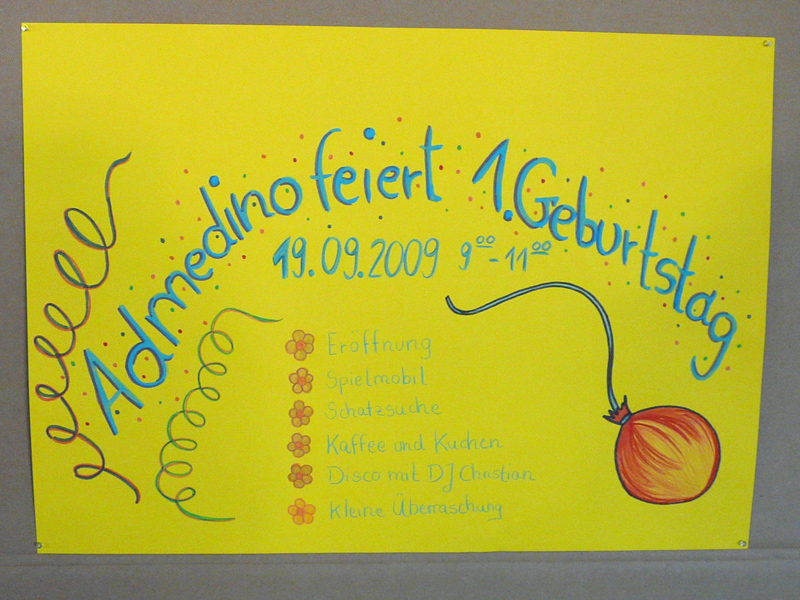 Admedino feiert 1. Geburtstag
19.09.2009 9⁰⁰ - 11⁰⁰
Eröffnung
Spielmobil
Schatzsuche
Kaffee und Kuchen
Disco mit DJ Christian
Kleine Überraschung